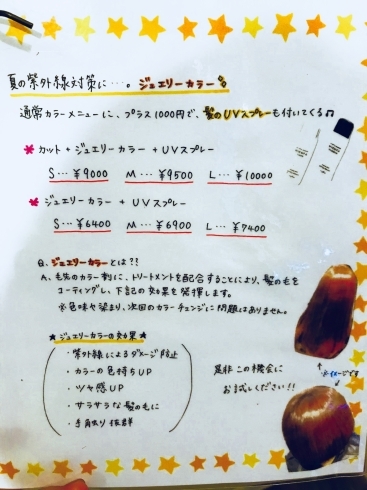 夏の紫外線対策に…。ジュエリーカラー
通常カラーメニューに、プラス1000円で、髪のUVスプレーも付いてくる♫
* カット + ジュエリーカラー + UVスプレー
S…¥9000 M…¥9500 L…¥10000
* ジュエリーカラー + UVスプレー
S…¥6400 M…¥6900 L…¥7400
Q. ジュエリーカラーとは??
A. 毛先のカラー剤に、トリートメントを配合することにより、髪の毛を
コーティングし、下記の効果を発揮します。
※色味や染まり、次回のカラーチェンジに問題はありません。
★ジュエリーカラーの効果★
・紫外線によるダメージ防止
・カラーの色持ちUP
・ツヤ感UP
・サラサラな髪の毛に
・手触り抜群
是非この機会に
お試しください!!
※イメージです